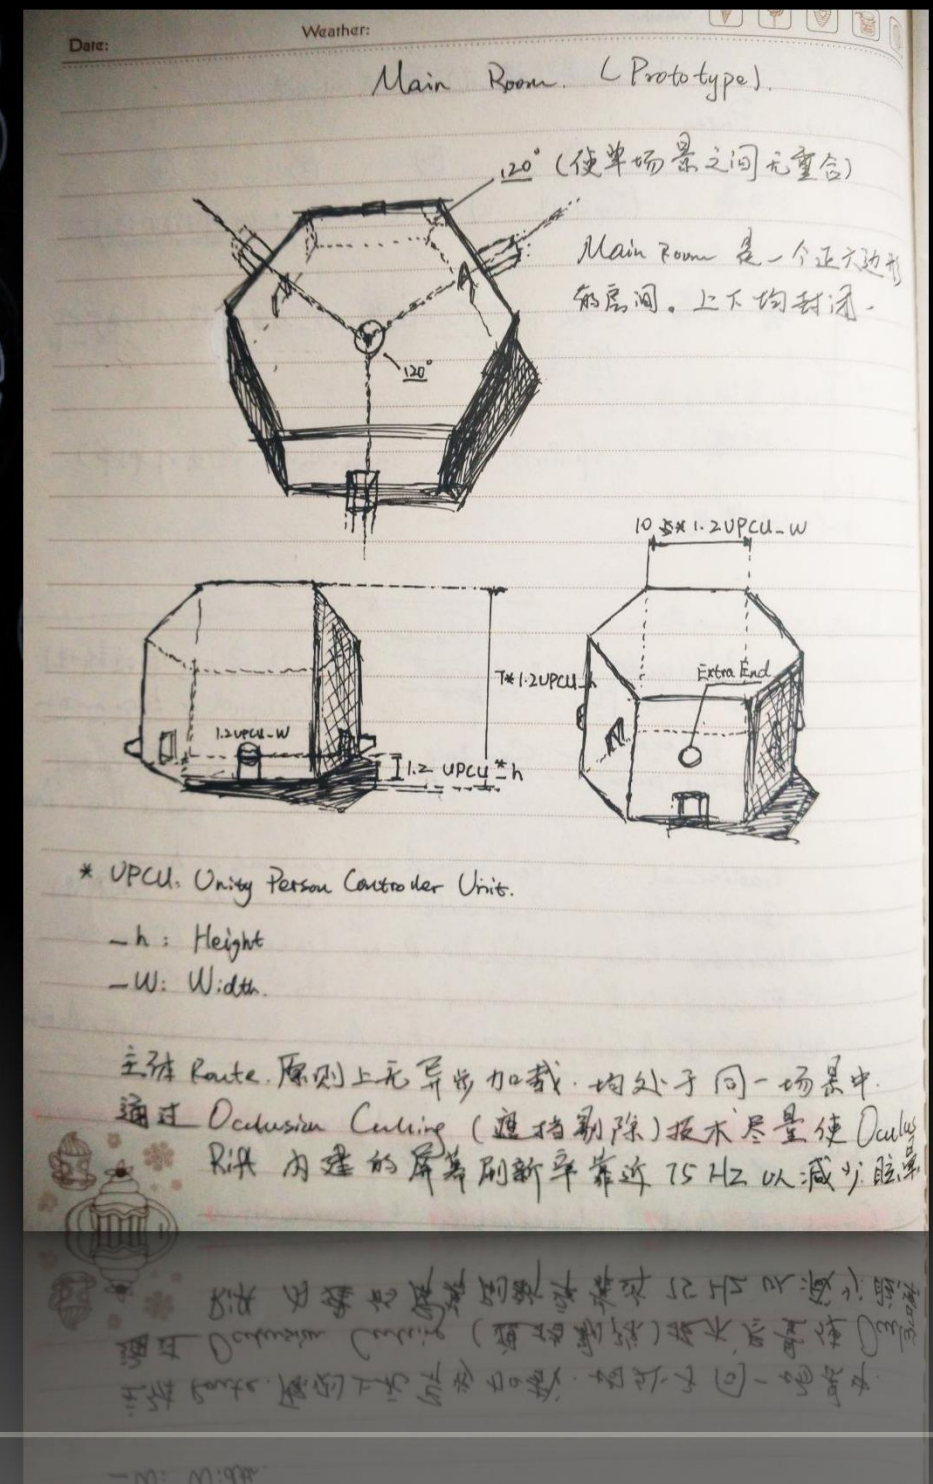 Date:
Weather:
Main Room. (Prototype).
120° (使单场景之间无重合)
Main Room 是一个正六边形
的房间。上下均封闭.
120°
10 * 1.2UPCU_W
7*1.2UPCU_h
Extra End
1.2UPCU_W
1.2 UPCU*_h
* UPCU: Unity Person Controller Unit.
_h: Height
_W: Width.
主体 Route.原则上无异步加载.均处于同一场景中.
通过 Occlusion Culling (遮挡剔除)技术尽量使Oculus
Rift 内建的屏幕刷新率靠近 75 HZ 以减少眩晕